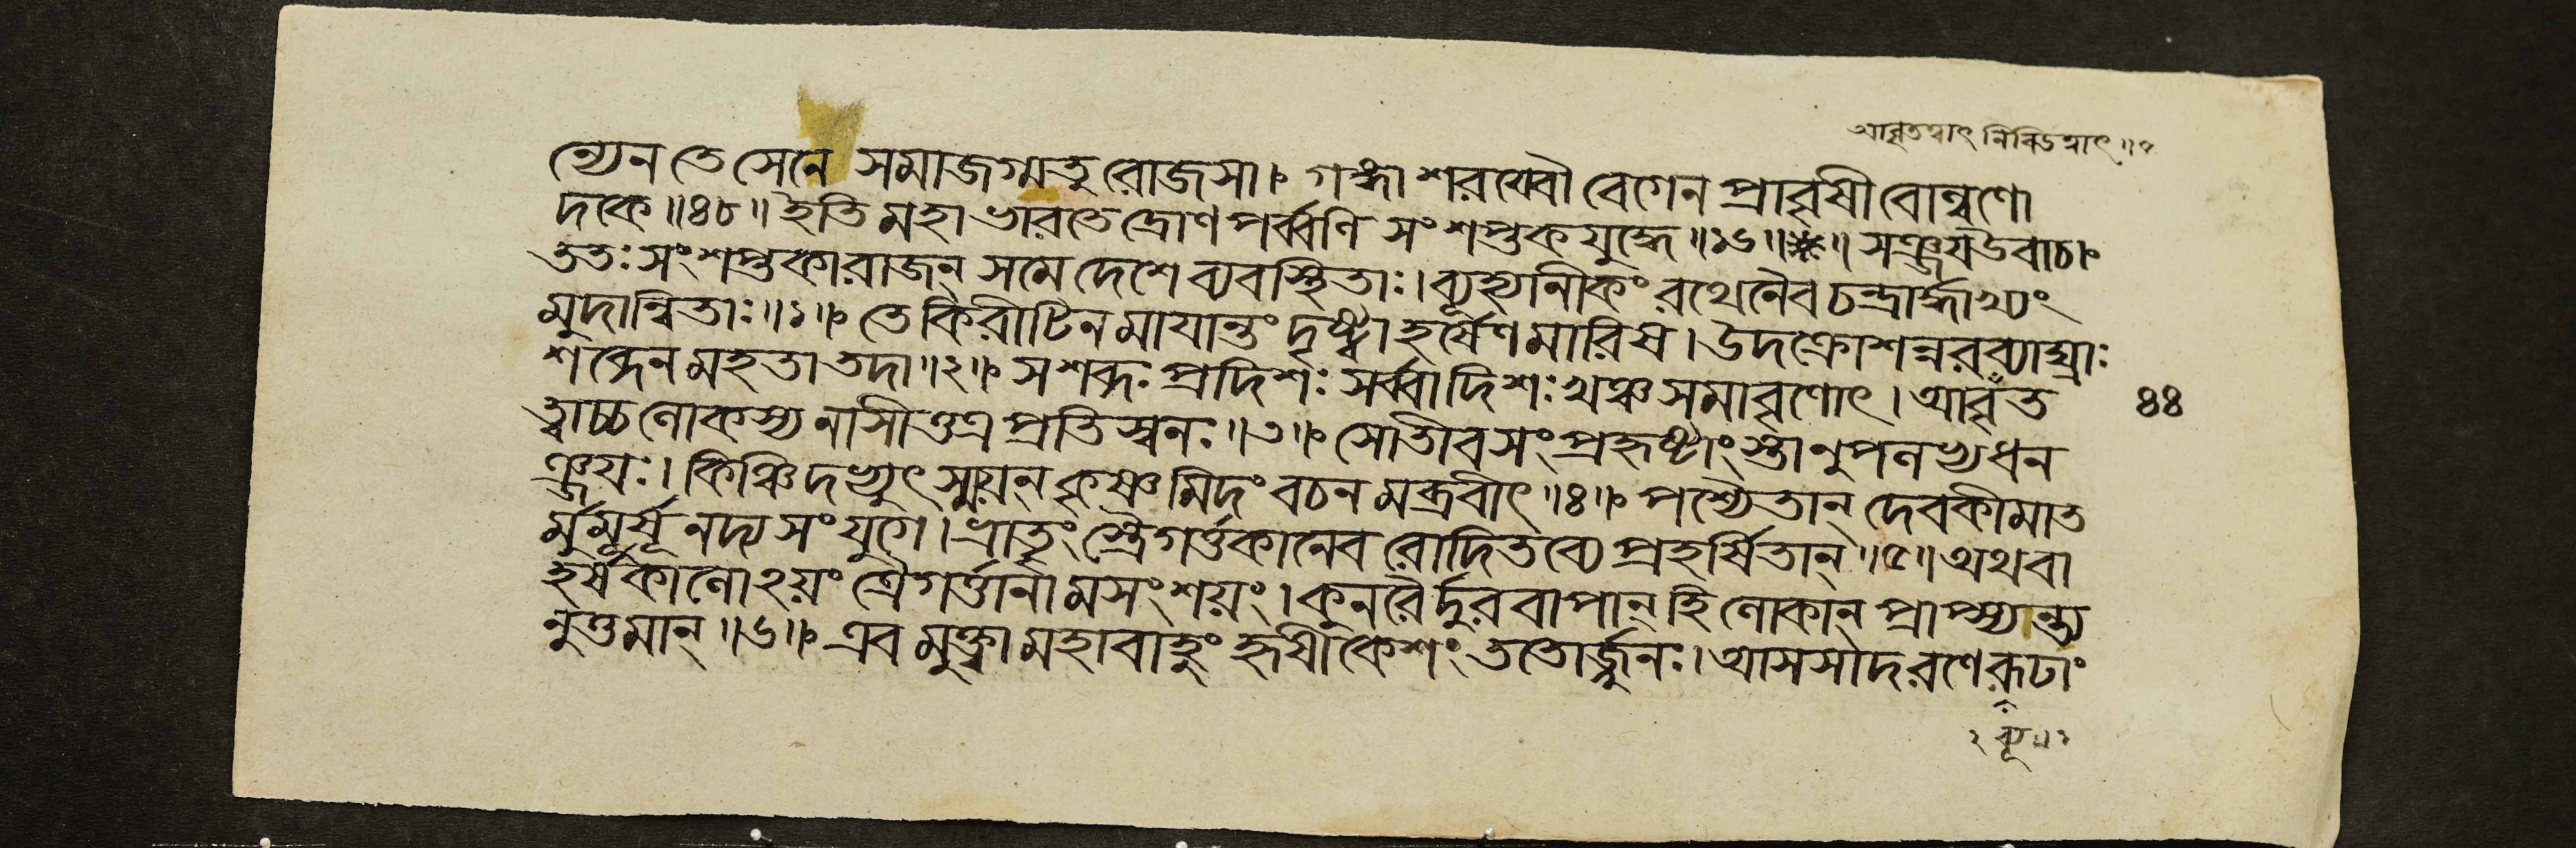 আবৃতত্বাৎ নিবিডত্বাৎ॥৭
ন্যেন তে সেনে সমাজগ্মতু রোজসা। গঙ্গা শরয্বৌ বেগেন প্রাবৃষী বোল্বণো
দকে॥৪৮॥ ইতি মহাভারতে দ্রোণ পর্ব্বণি সংশপ্তক যুদ্ধে॥১৬॥ সঞ্জয উবাচ।
ততঃ সংশপ্তকা রাজন্ সমে দেশে ব্যবস্থিতাঃ। ব্যূহ্যানীকং রথেনৈব চন্দ্রার্দ্ধাখ্যং
মুদান্বিতাঃ॥১॥ তে কিরীটিন মাযান্তং দৃষ্ট্বা হর্ষেণ মারিষ। উদক্রোশন্নরব্যাঘ্রাঃ
শব্দেন মহতা তদা॥২॥ স শব্দঃ প্রদিশঃ সর্ব্বা দিশঃ খঞ্চ সমাবৃণোৎ। আবৃত
ত্বাচ্চ লোকস্য নাসীত্তত্র প্রতিস্বনঃ॥৩॥ সোতীব সংপ্রহৃষ্টাংস্তানুপলভ্য ধন
ঞ্জযঃ। কিঞ্চিদভ্যুৎস্ময়ন্ কৃষ্ণ মিদং বচন মব্রবীৎ॥৪॥ পশ্যৈতান্ দেবকীমাত
র্মুমূর্ষূনদ্য সংযুগে। ভ্রাতৄং স্ত্রৈগর্ত্তকানেব রোদিতব্যে প্রহর্ষিতান্॥৫॥ অথবা
হর্ষকালোঽয়ং ত্রৈগর্ত্তানামসংশয়ং। কুনরৈর্দুরবাপান্ হি লোকান্ প্রাপ্স্যান্ত্য
নুত্তমান্॥৬॥ এব মুক্ত্বা মহাবাহুং হৃষীকেশং ততোর্জ্জুনঃ। আসসাদ রণে ব্যূঢাং
৪৪
২ ব্যূ॥১